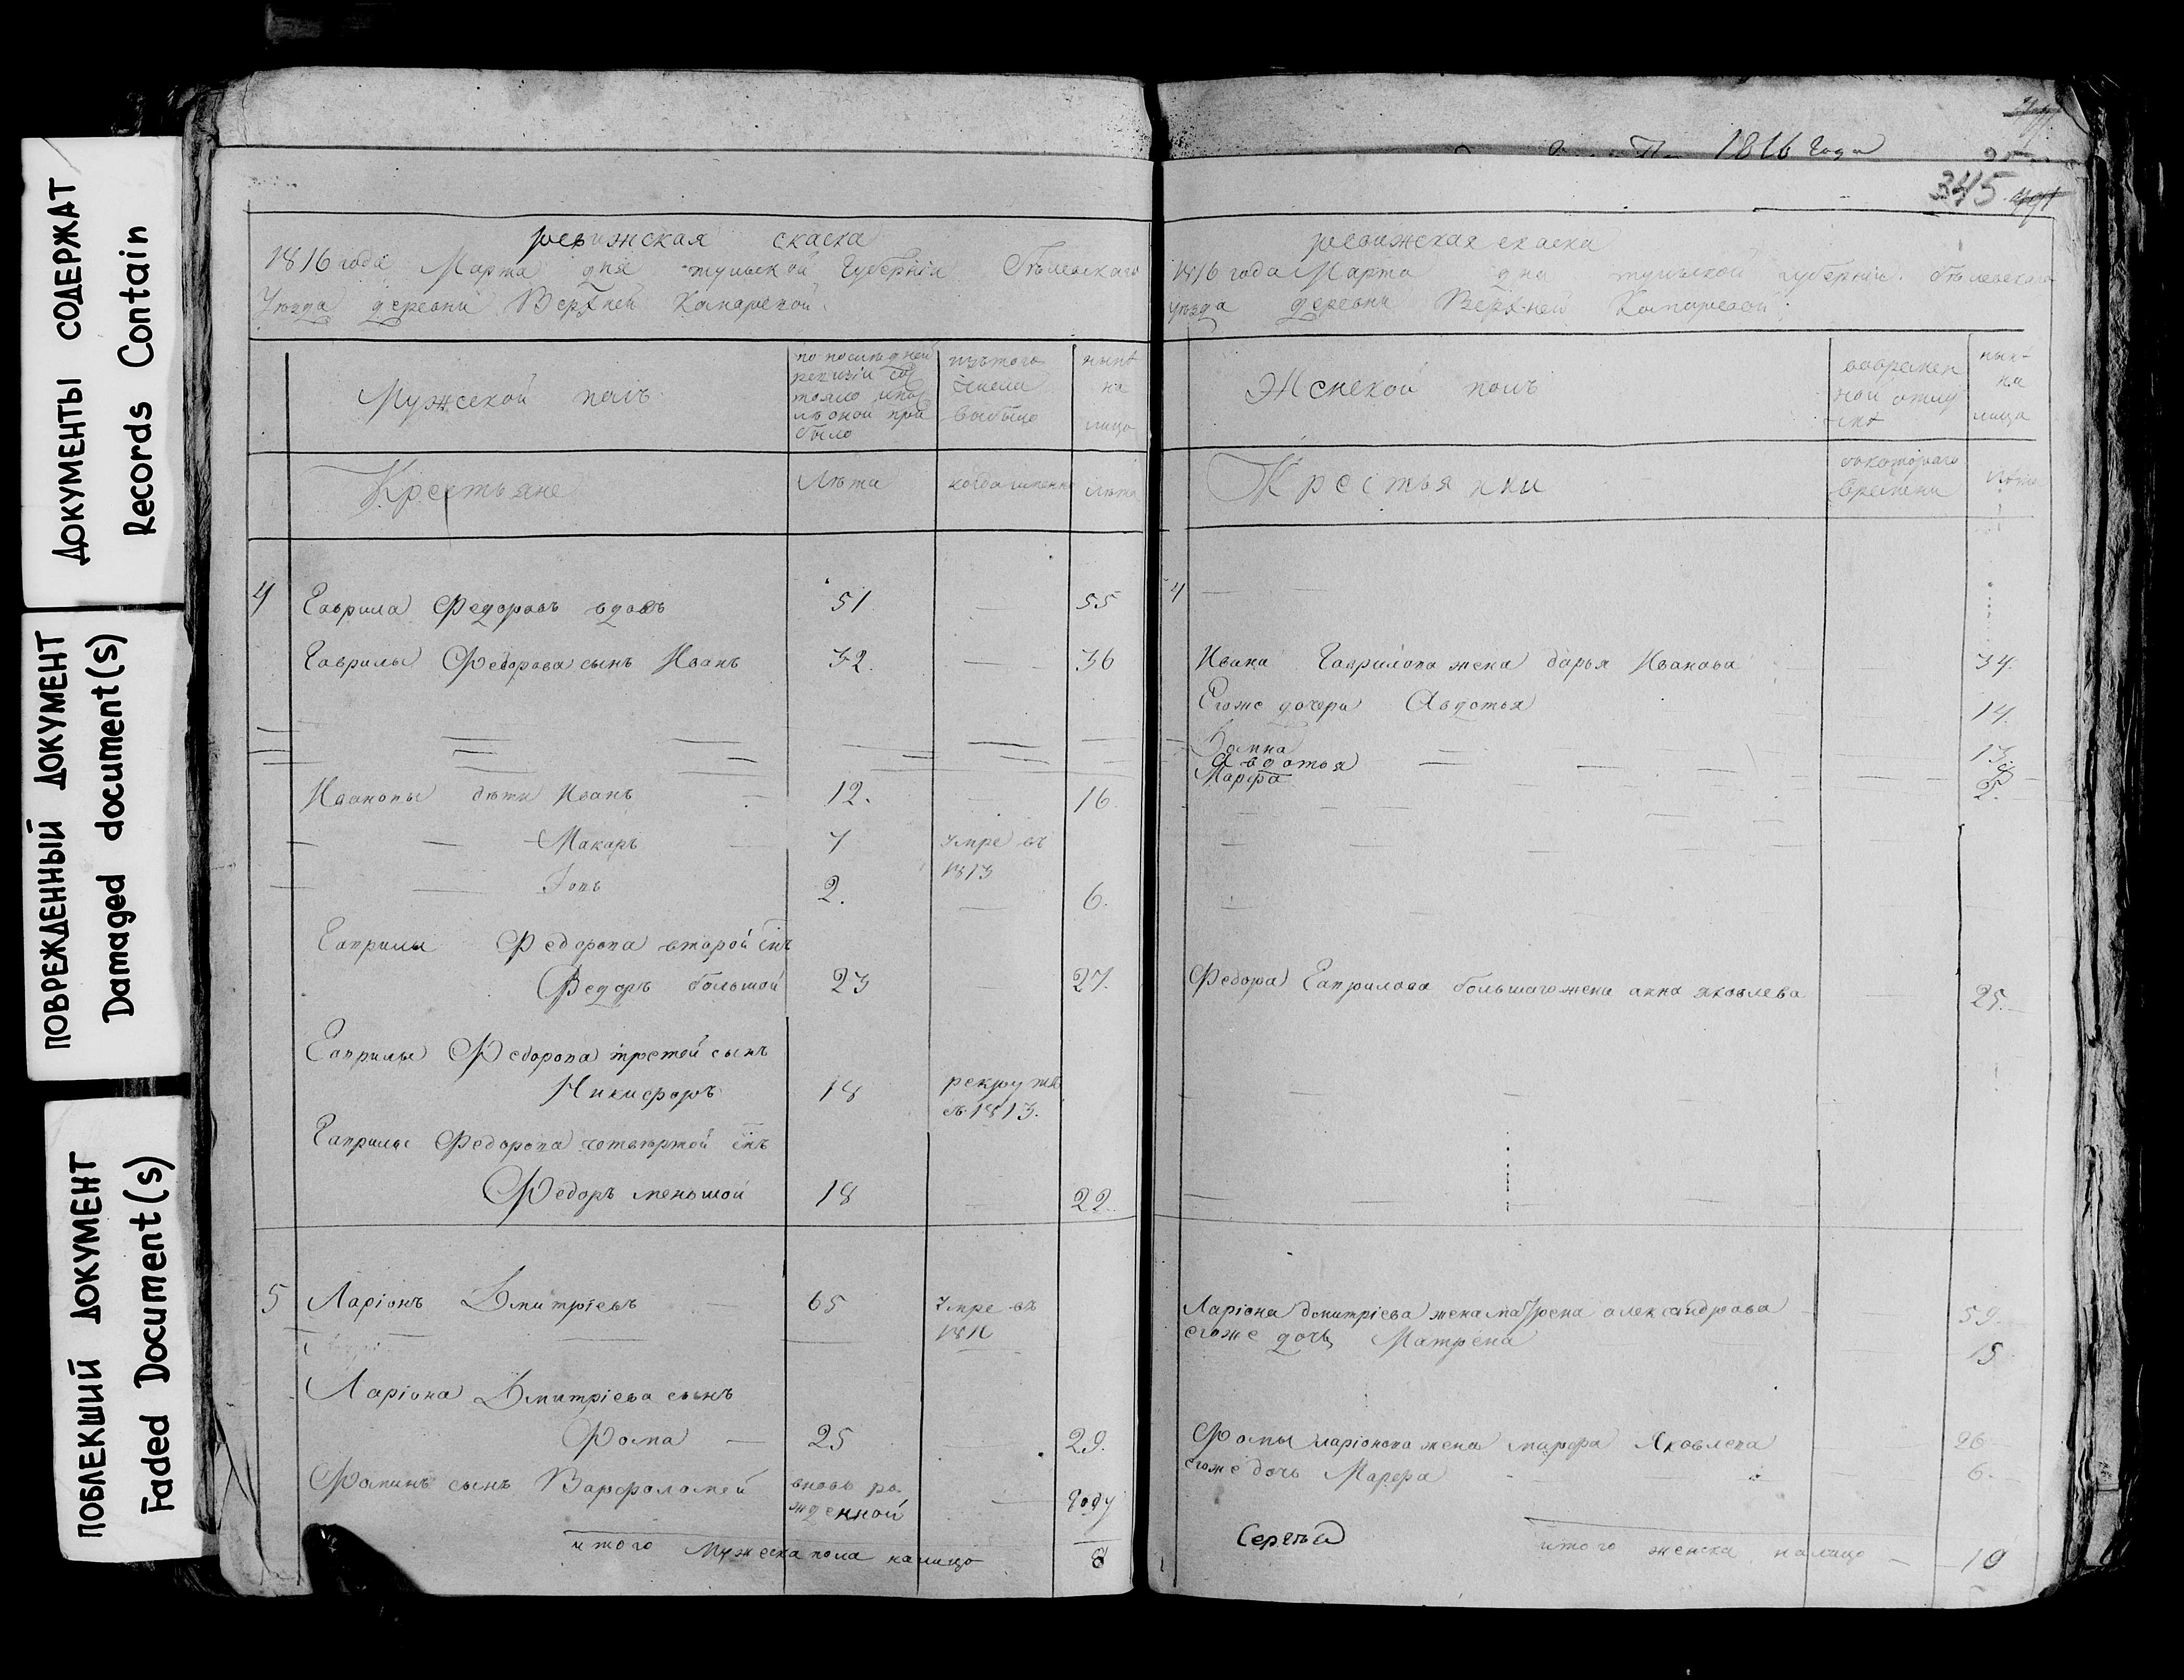 ДОКУМЕНТЫ СОДЕРЖАТ
Records Contain
ПОВРЕЖДЕННЫЙ ДОКУМЕНТ
Damaged document(s)
ПОБЛЕКШИЙ ДОКУМЕНТ
Faded Document(s)
ревижская скаска
1816 года Марта дня тульской Губерніи Бѣлевскаго
Уѣзда деревни Верхней
Мужеской полъ
по последней
ревизіи сос
тояло ипос
лѣ оной при
было
изътого
числа
выбыло
нынѣ
на
лицо
Крестьяне
Лѣта
когда именно
лѣта
4 Гаврила Федоровъ вдовъ 51 — 55
Гаврилы Федорова сынъ Иванъ 32. — 36
Ивановы дѣти Иванъ — 12. — 16.
— — Макаръ — 7 умре въ
1813
2. — 6.
Гаврилы Федорова второй снъ
Федоръ большой 23 — 27.
Гаврилы Федорова третей сынъ
Никифоръ 18 рекрутъ
въ 1813.
Гаврилы Федорова четвертой снъ
Федоръ меньшой 18 — 22.
5 Ларіонъ Дмитріевъ — 65 умре въ
Ларіона Дмитріева сынъ
Фома — 25 — 29.
Фоминъ сынъ Варфоломей вновь ро
жденной — году
итого Мужеска пола налицо 8
1816 Года
345
ревижская скаска
1816 года Марта дня тульской губерніи бѣлевскаго
уѣзда деревни Верхней
Женской полъ
вовремен
ной отлу
чкѣ
нын-
на
лицо
Крестьянки
съкотораго
времени
лѣта
4 — —
Ивана Гаврилова жена дарья Иванова — 34.
Егоже дочери Авдотья 14.
13.
Авдотья — — —
Марфа 2.
Федора Гаврилова большагожена анна яковлева — 25.
Ларіона дмитріева жена матрена александрова 59.
егоже дочь Матрена 15
Фомы ларіонова жена марфа Яковлева 26
егоже дочь Марфа 6.
Сергѣй
итого женска налицо — 10